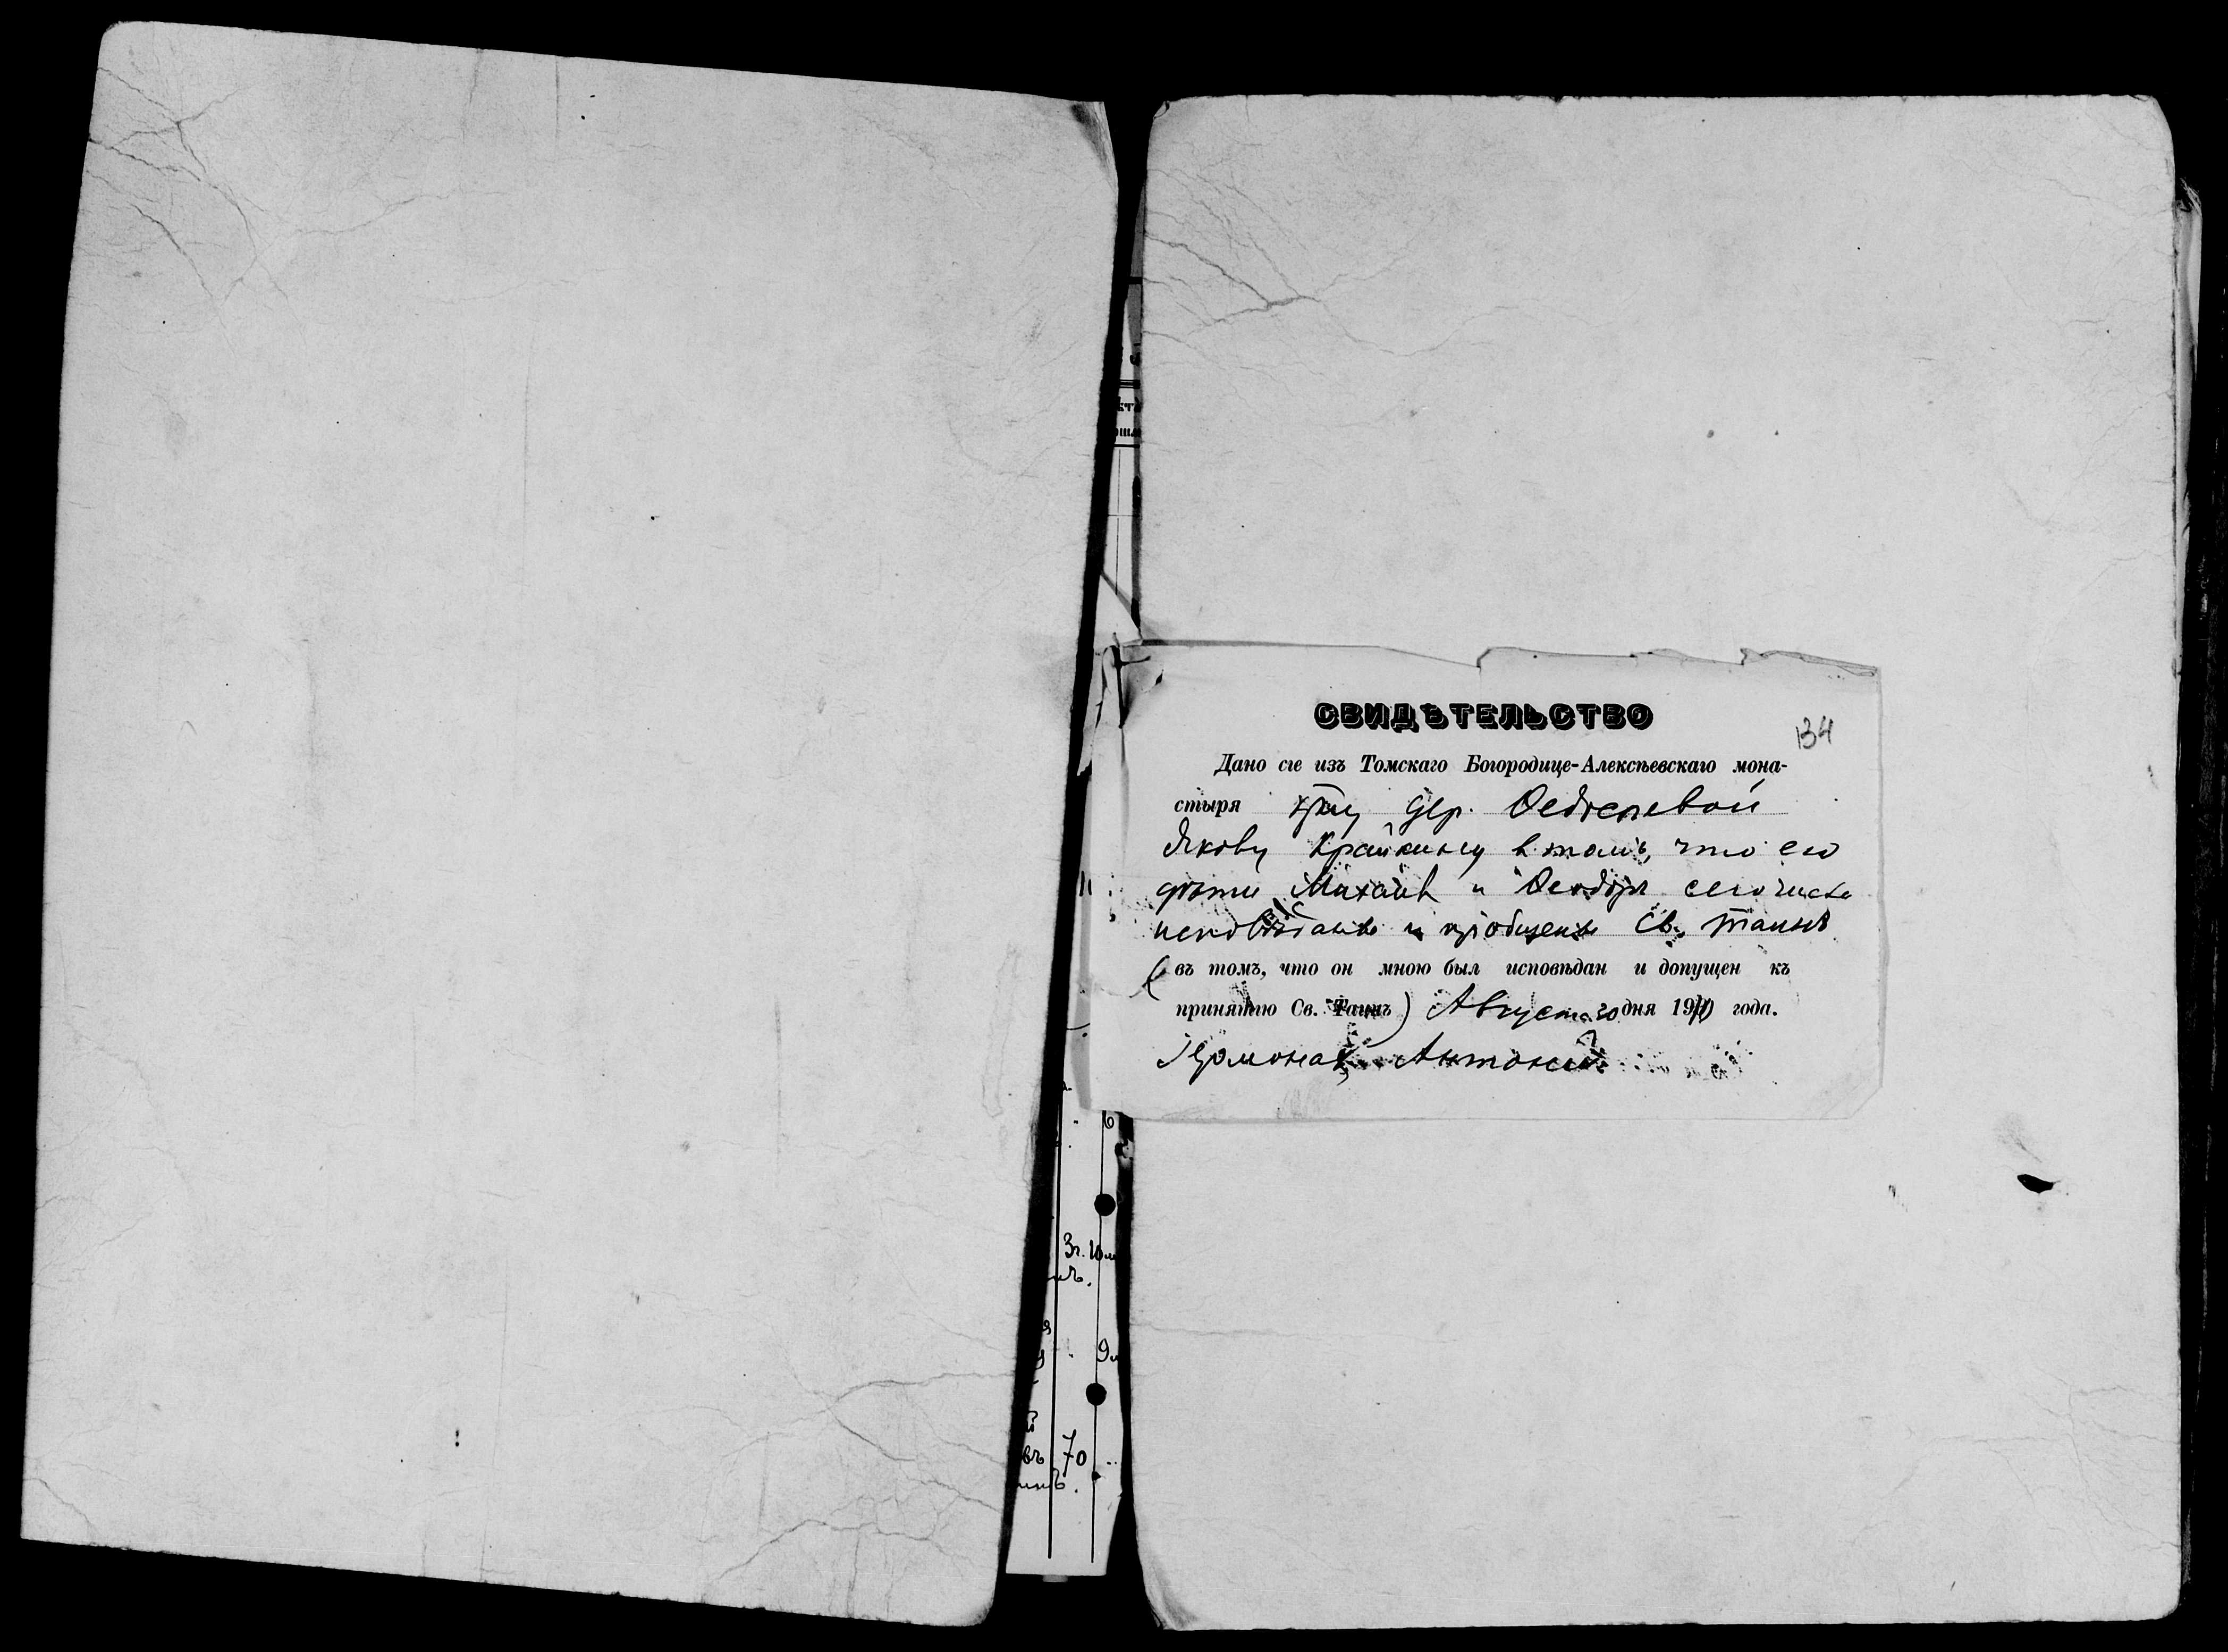 СВИДѢТЕЛЬСТВО
134
Дано сіе изъ Томскаго Богородице-Алексѣевскаго мона-
стыря кр-ну дер.
Якову Крайкину в томъ, что его
дѣти Михаилъ и Ѳеодоръ сего числа
исповѣданы и пріобщены Св. Таинъ
(въ томъ, что он мною был исповѣдан и допущен къ
принятію Св. Таинъ) Августа 20 дня 191 года.
Іеромонахъ Антоній
6
3 г. 10 м
9 м
въ 70